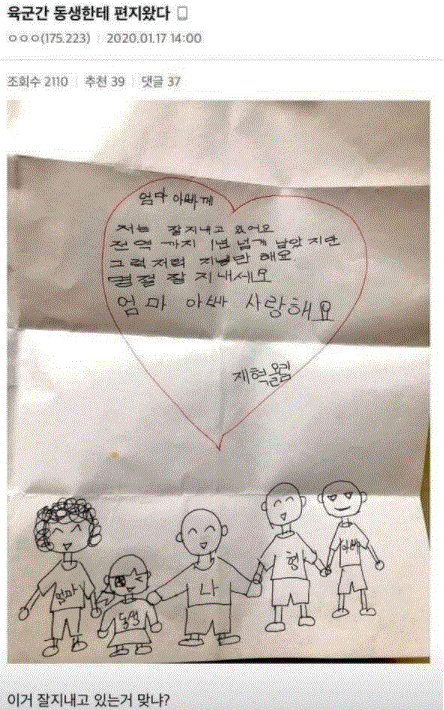 육군간 동생한테 편지왔다
ㅇㅇㅇ(175.223) 2020.01.17 14:00
조회수 2110 추천 39 댓글 37
엄마 아빠께
저는 잘지내고 있어요
전역 까지 1년 넘게 남았 지만
그럭저럭 지낼만 해요
명절 잘 지내세요
엄마 아빠 사랑해요
재혁올림
엄마
동생
나
형
아빠
이거 잘지내고 있는거 맞냐?